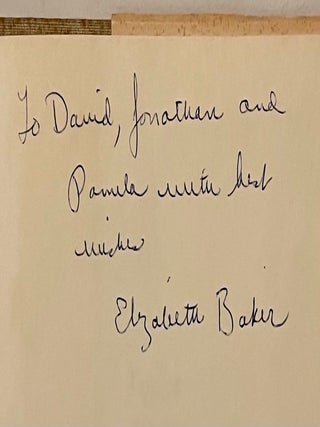 To David, Jonathan and
Pamela with best
wishes
Elizabeth Baker